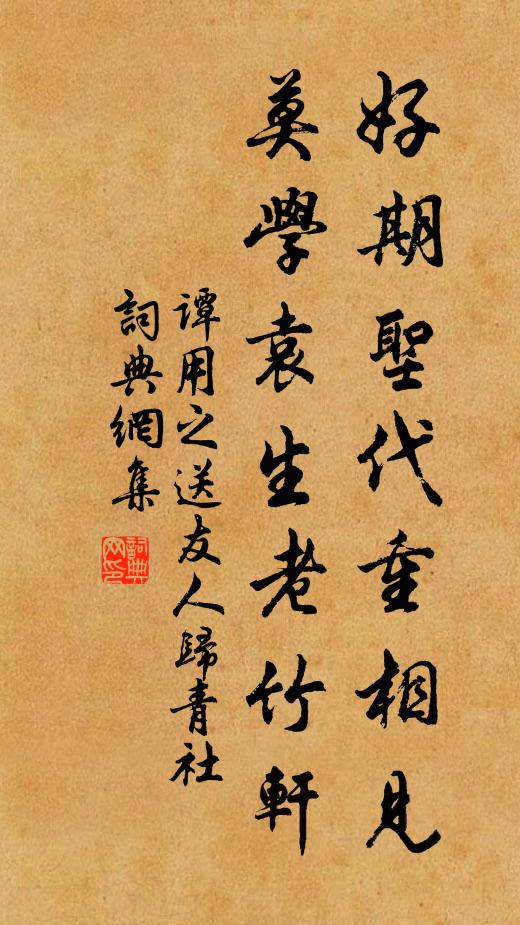 好期聖代重相見
莫學袁生老竹軒
譚用之送友人歸青社
詞典網集
詞典网印